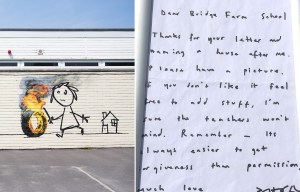 Dear Bridge Farm School
Thanks for your letter and
naming a house after me.
Please have a picture.
if you don't like it feel
free to add stuff. I'm
sure the teachers won't
mind. Remember - its
always easier to get
forgiveness than permission.
much love